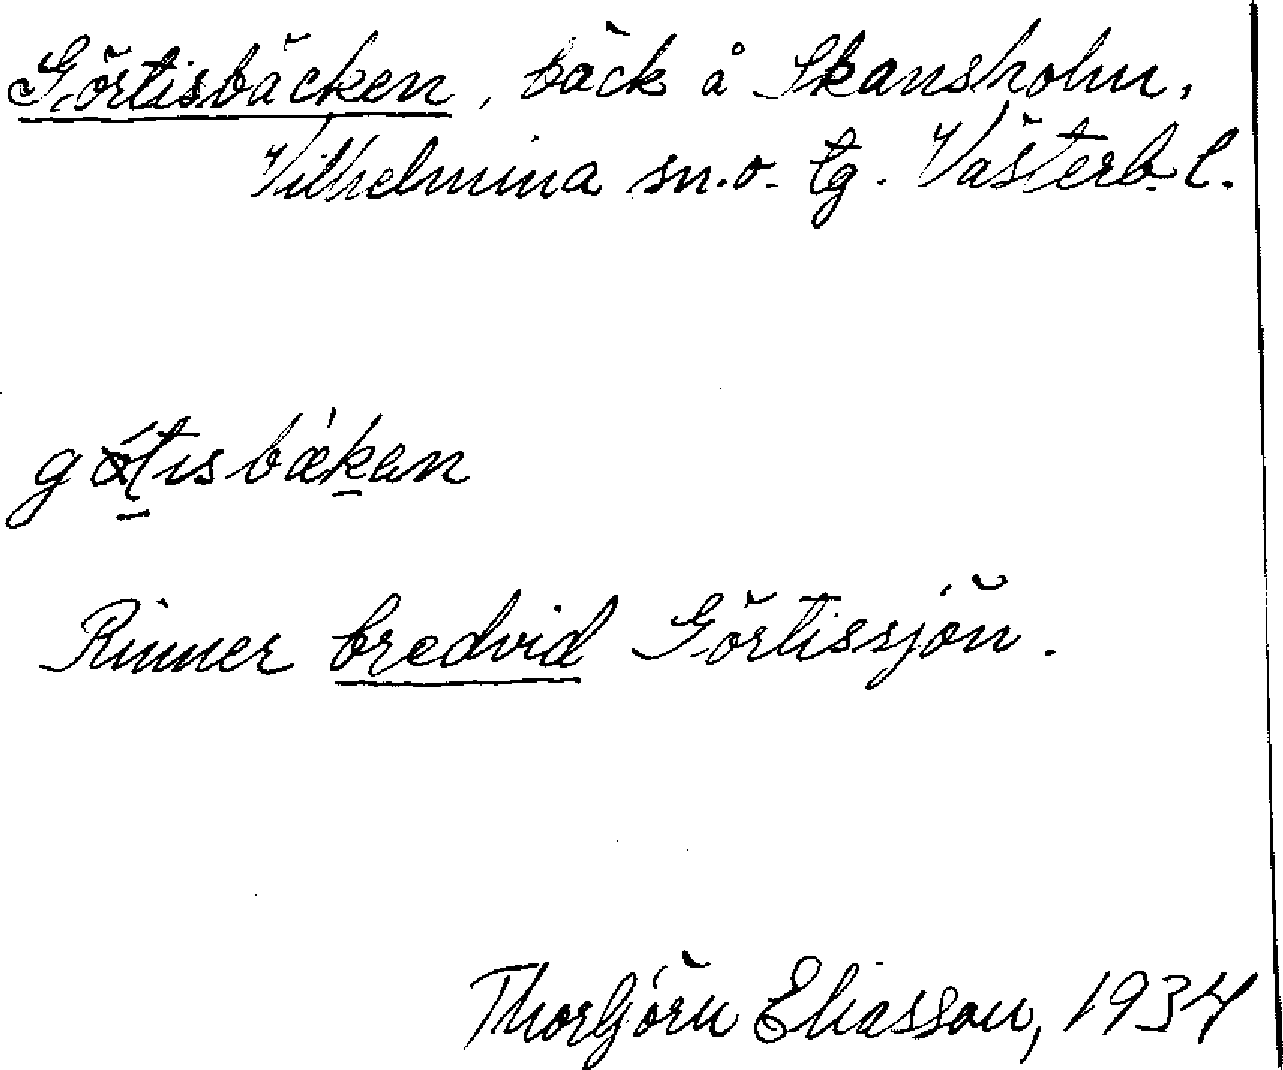 Görtisbäcken, bäck å Skansholm,
Vilhelmina sn. o. tg. Västerb. l.
Rinner bredvid Görtissjön.
Thorbjörn Eliasson, 1934